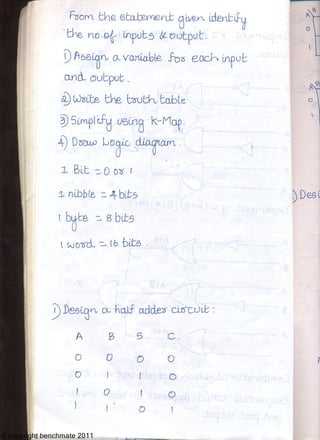 From the statement given identify
the no.of inputs & output:
1) Assign a variable for each input
and output.
2) Write the truth table
3) Simplify using k-Map.
4) Draw Logic diagram.
1 Bit = 0 or 1
1 nibble = 4 bits
1 byte = 8 bits
1 word = 16 bits.
1) Design a half adder circuit:
A B S C
0 0 0 0
0 1 1 0
1 0 1 0
1 1 0 1
benchmate 2011